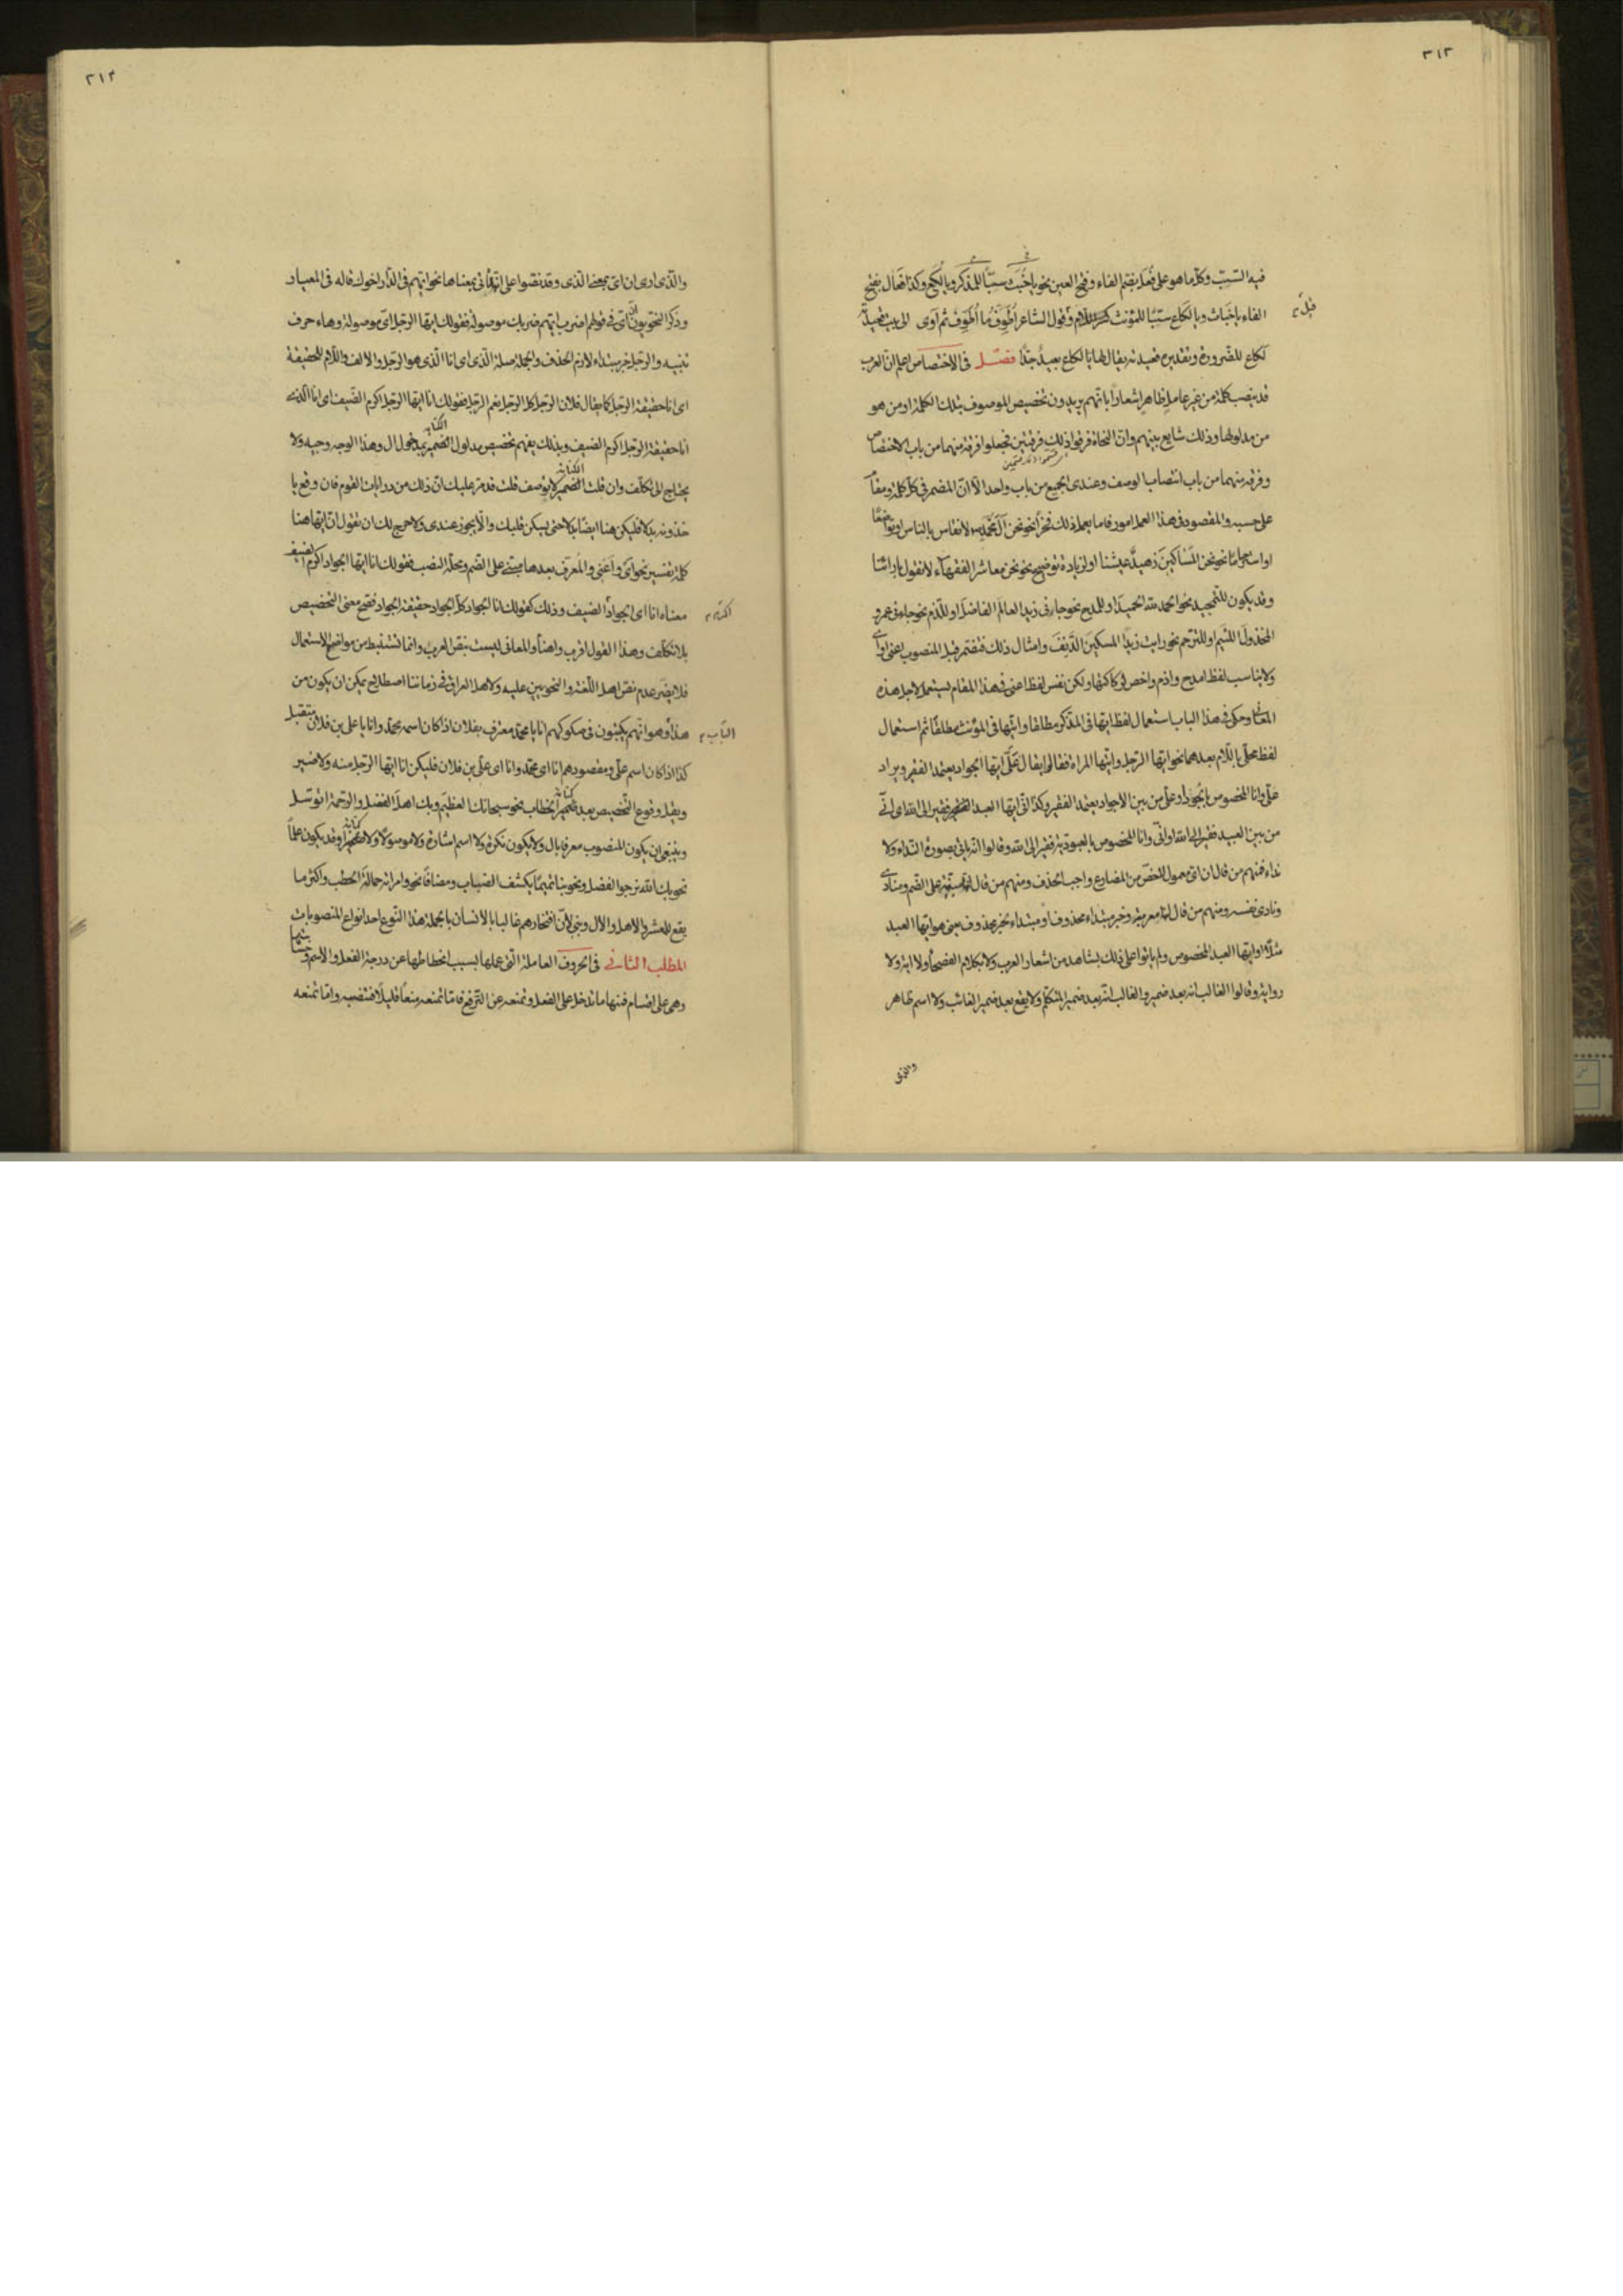 ٣١٣
فيه السبب وكل ما هو على فُعَل بضم الفاء وفتح العين نحو يا خُبَث سبّاً للمذكر ويا لُكَع وكذا فَعال بفتح
الفاء يا خَباث ويا لَكاع سبّاً للمؤنث وقول الشاعر اُطَوِّفُ ما اُطَوِّفُ ثم آوى الى بيت قعيدته
لكاع للضرورة وتقديره قعيدته يقال لها يا لكاع بعيدٌ جدّاً فصل فى الاختصاص اعلم ان العرب
قد ينصب كلمة من غير عامل ظاهر اشعاراً بانهم يريدون تخصيص الموصوف بتلك الكلمة او من هو
من مدلولها وذلك شايع بينهم وان النحاة فرقوا ذلك فرقتين فجعلوا فرقة منهما من باب الاختصاص
وفرقة منهما من باب انتصاب الوصف وعندى الجميع من باب واحد الا ان المضمر فى كل كلمة ومقام
على حسبه والمقصود فى هذا العمل امور فاما يعمل ذلك فخراً نحو نحن آل محمد لا نقاس بالناس او تواضعاً
او استرحاماً نحو نحن المساكين زهيدٌ عيشنا او لزيادة توضيح نحو نحن معاشر الفقهاء لا نقول بارائنا
وقد يكون للتمجيد نحو الحمد لله الحميد او للمدح نحو جاءنى زيد العالم الفاضل او للذم نحو جاءنى عمرو
المخذول اللئيم او للترحم نحو رايت زيداً المسكين الدنف وامثال ذلك فتقدر قبل المنصوب اعنى او اى
ولا يناسب لفظ امدح واذم واخص ولكن نفس لفظ اعنى فى هذا المقام يستعمل لاجل هذه
المعانى وحكى فى هذا الباب استعمال لفظ ايها فى المذكر مطلقا وايتها فى المؤنث مطلقا ثم استعمال
لفظ محلى باللام بعدهما نحو ايها الرجل وايتها المراة فقالوا يقال علىّ ايها الجواد يعتمد الفقير ويراد
علىّ وانا المخصوص بالجود او علىّ من بين الاجواد يعتمد الفقير وكذا انى ايها العبد فقير الى الله اى انى
من بين العبيد فقير الى الله او انى وانا المخصوص بالعبودية فقير الى الله وقالوا انه ياتى بصورة النداء ولا
نداء فمنهم من قال ان اى معمول لاخص من المضارع واجب الحذف ومنهم من قال انها مبنية على الضم ومنادى
ونادى نفسه ومنهم من قال انها معربة وخبر مبتداء محذوف او مبتداء خبر محذوف يعنى هو ايها العبد
مثلاً او ايها العبد المخصوص ولم ياتوا على ذلك بشاهد من اشعار العرب ولا بكلام الفصحاء ولا اية ولا
رواية وقالوا الغالب انه بعد ضمير والغالب انه بعد ضمير المتكلم ولا يقع بعد ضمير الغائب ولا اسم ظاهر
والذى
٣١٤
والذى ارى ان اى بمعنى الذى وقد نصوا على انها تاتى بمعناها نحو ايهم فى الدار اخوك قاله فى المعيار
وذكر النحويون ان اى فى قولهم اضرب ايهم ضربك موصولة فقولك ايها الرجل اى موصولة وهاء حرف
تنبيه والرجل خبر مبتداء لازم الحذف والجملة صلة الذى اى انا الذى هو الرجل والالف واللام للحقيقة
اى انا حقيقة الرجل كما يقال فلان الرجل كل الرجل نعم الرجل فقولك انا ايها الرجل اكرم الضيف اى انا الذى
انا حقيقة الرجل اكرم الضيف وبذلك يفهم تخصيص مدلول الكناية بمدخول ال وهذا الوجه وجيه ولا
يحتاج الى تكلف وان قلت الكناية لا يوصف قلت قد مر عليك ان ذلك من درايات القوم فان وقع يا
خذونه بدلا فليكن هنا ايضا بدلا حتى يسكن قلبك والا يجوز عندى ولا حرج لك ان تقول ان ايها هنا
كلمة تفسير نحو اى واَعنى والمعرف بعدها مبنى على الضم ومحله النصب فقولك انا ايها الجواد اكرم الضيف
معناه انا اى الجواد الضيف وذلك كقولك انا الجواد كل الجواد حقيقة الجواد فتصح معنى التخصيص
اكرم
بلا تكلف وهذا القول اقرب واهنأ والمعانى ليست بنص العرب وانما تستنبط من مواضع الاستعمال
فلا يضر عدم نص اهل اللغة والنحويين عليه ولاهل العراق فى زماننا اصطلاح يمكن ان يكون من
هذا وهو انهم يكتبون فى صكوكهم انا يا محمد معترف بفلان اذا كان اسمه محمد وانا يا على بن فلان متقبل
الباب
كذا اذا كان اسمه على ومقصودهم انا اى محمد وانا اى على بن فلان فليكن انا ايها الرجل منه ولا ضير
ويقل وقوع التخصيص بعد كناية الخطاب نحو سبحانك العظيم وبك اهل الفضل والرحمة اتوسل
وينبغى ان يكون المنصوب معرفا بال ولا يكون نكرة ولا اسم اشارة ولا موصولا ولا كناية وقد يكون علماً
نحو بك الله نرجو الفضل ونحو بنا تميماً يكشف الضباب ومضافاً نحو وامراته حمالة الحطب واكثر ما
يقع للعشرة والاهل والال وبنى لان افتخارهم غالبا بالانسان بالجملة هذا النوع احد انواع المنصوبات
المطلب الثانى فى الحروف العاملة التى عملها بسبب انحطاطها عن درجة الفعل والاسم
وهى على اقسام فمنها ما تدخل على الفعل وتمنعه عن الترفع فاما تمنعه منعاً قليلاً فتنصبه واما تمنعه